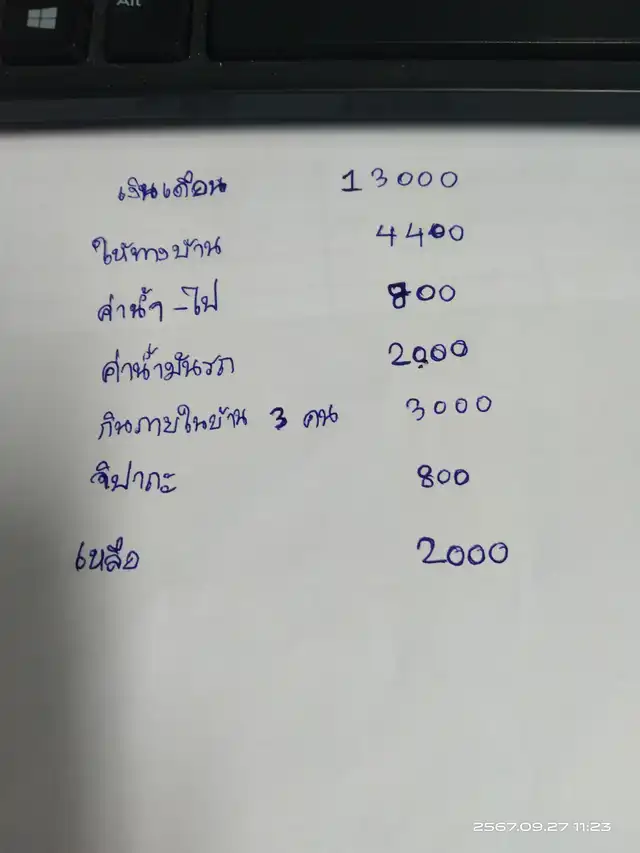 Alt
เงินเดือน 13000
ให้ทางบ้าน 4400
ค่าน้ำ-ไฟ 800
ค่าน้ำมันรถ 2000
กินภายในบ้าน 3 คน 3000
จิปาถะ 800
เหลือ 2000
2567.09.27 11:23